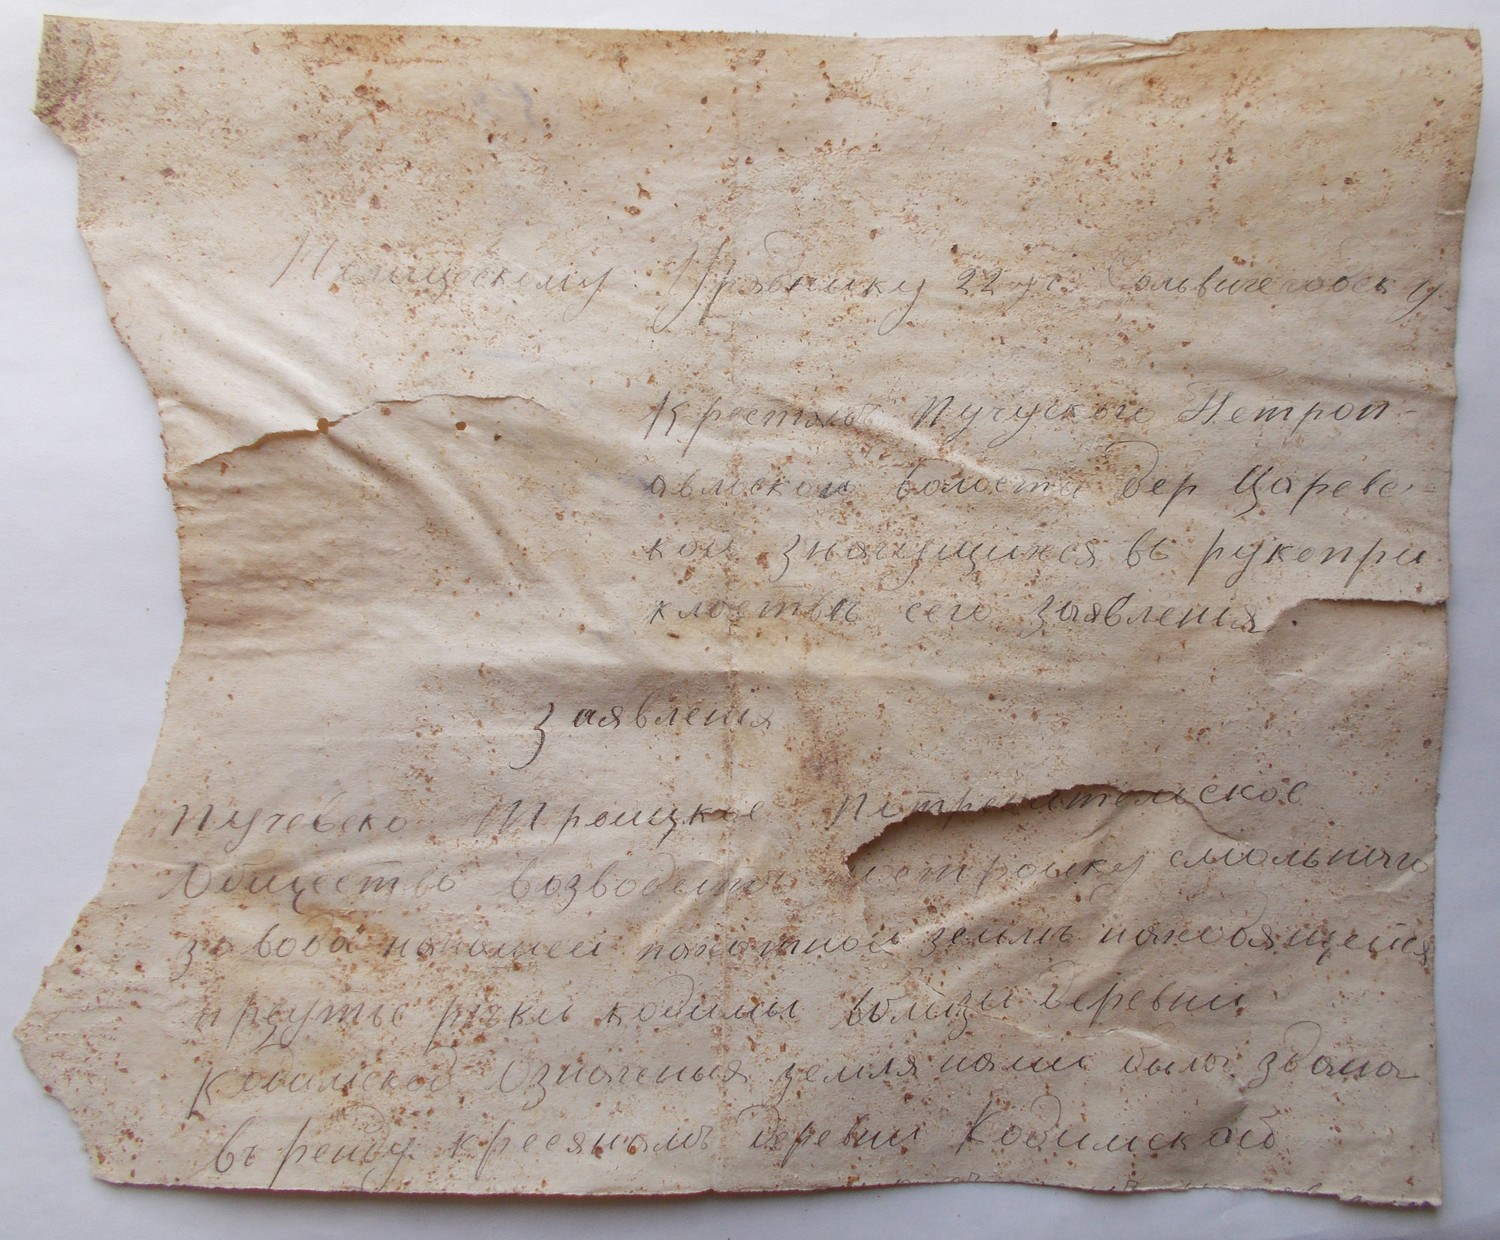 Полицескому Уряднику 22 уч. Сольвычегодску
Крестьянъ Пучуского Петроп-
авлоской волости дер Царевс-
кой значущихся въ рукопри
кластви сего заявления.
Заявления
Пучевско Троицкое Потребительское
Общество возводитъ постройку смольного
завода нанашей пахотной земли находящейся
ручки кодимы вблизи деревни
Кодимской Означеныя земля нами была здана
въ ренду кресянамъ деревни Кодимской